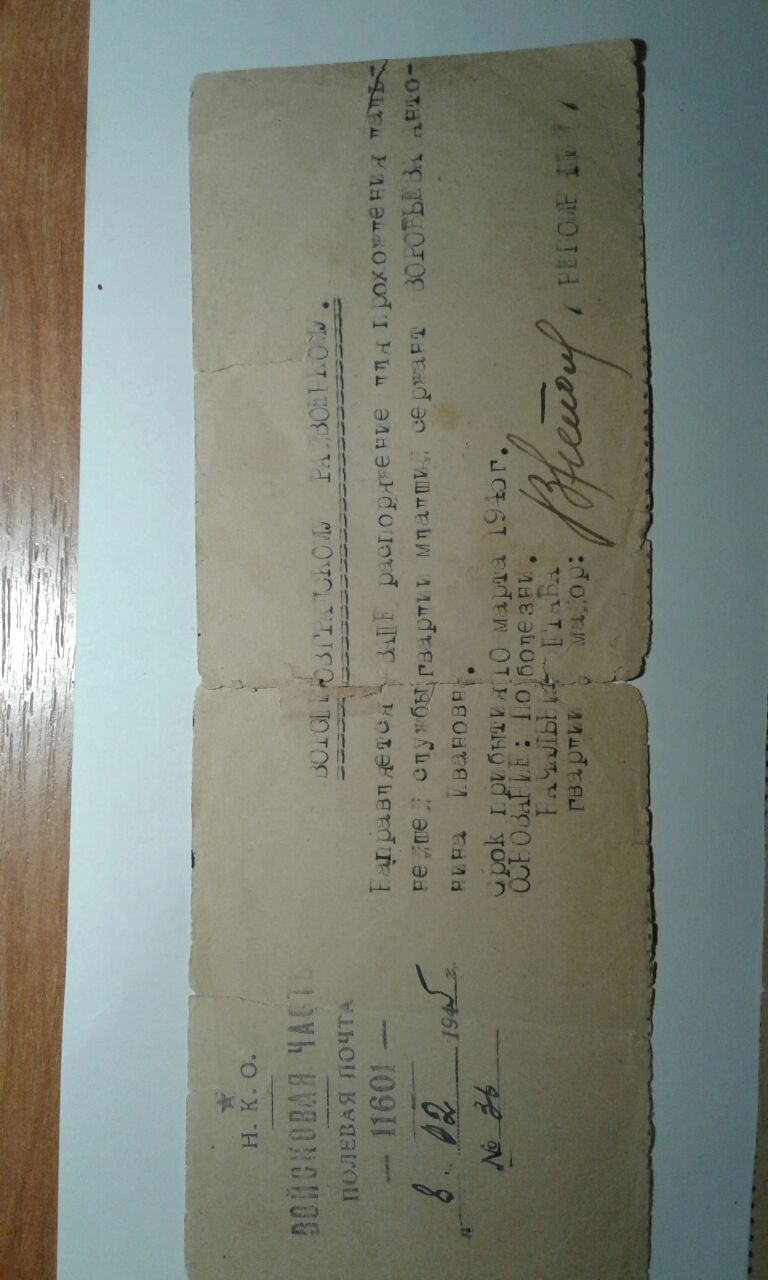 Н. К. О.
ВОЙСКОВАЯ ЧАСТЬ
ПОЛЕВАЯ ПОЧТА
— 11601 —
" 8 . 02 1945 г.
№ 36
РАЙВОЕНКОМУ.
Направляется в ВАШЕ распоряжение для прохождения даль-
нейшей службы гвардии младший сержант ВОРОБЬЕВА Анто-
нина Ивановна.
Срок прибытия 10 марта 1945г.
ОСНОВАНИЕ: По болезни.
НАЧАЛЬНИК ШТАБА
гвардии майор: